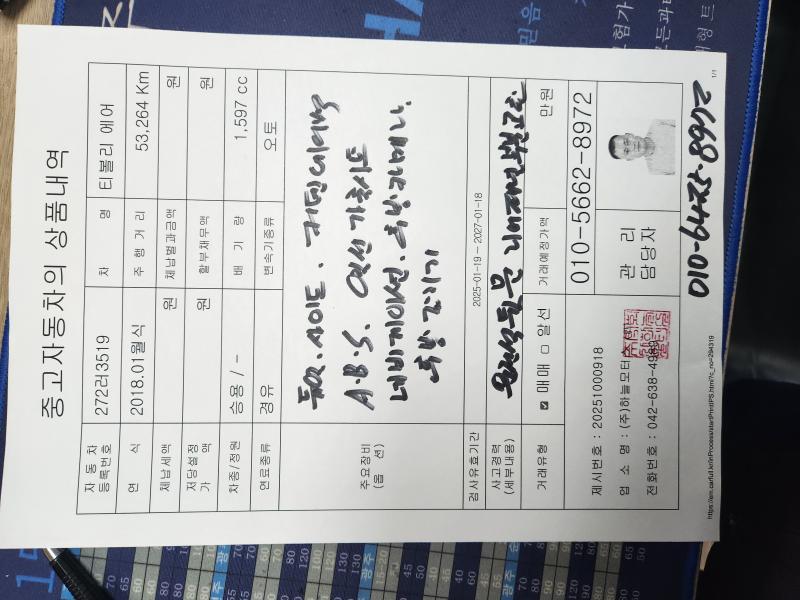 중고자동차의 상품내역
자 동 차 등록번호 272러3519 차 명 티볼리 에어
연 식 2018.01월식 주 행 거 리 53,264 Km
체납세액 원 체납범과금액 원
저당설정 가 액 원 할부채무액 원
차종/정원 승용 / - 배 기 량 1,597 cc
연료종류 경유 변속기종류 오토
주요장비 (옵 션)
듀얼. 사이드. 커텐에어백
A.B.S. 열선 가죽시트
네비게이션. 후방카메라.
후방감지기
검사유효기간 2025-01-19 ~ 2027-01-18
사고경력 (세부내용) 운전석 뒷문
거래유형 매매 알선 거래예정가액 만원
제시번호 : 20251000918
업 소 명 : (주)하늘모터스
전화번호 : 042-638-4989
관 리 담당자 010-5662-8972
010-6425-8972
https://em.carfull.kr/inProcess/startPrint/PS.htm?c_no=294319
1/1